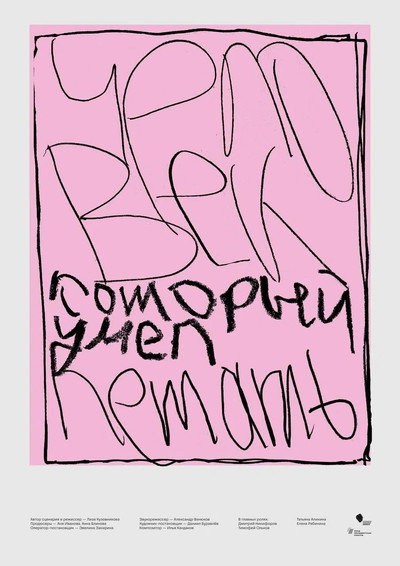 Чело
век
который
умел
летать
Автор сценария и режиссер — Лиза Кузовникова
Продюсеры — Аня Иванова Анна Блинова
Оператор-постановщик — Эвелина Захарина
Звукорежиссер — Александр Волосков
Художник-постановщик — Даниил Бурмалёв
Композитор — Илья Жердянов
В главных ролях:
Дмитрий Никифоров
Тимофей Семков
Татьяна Аликина
Елена Рябинина